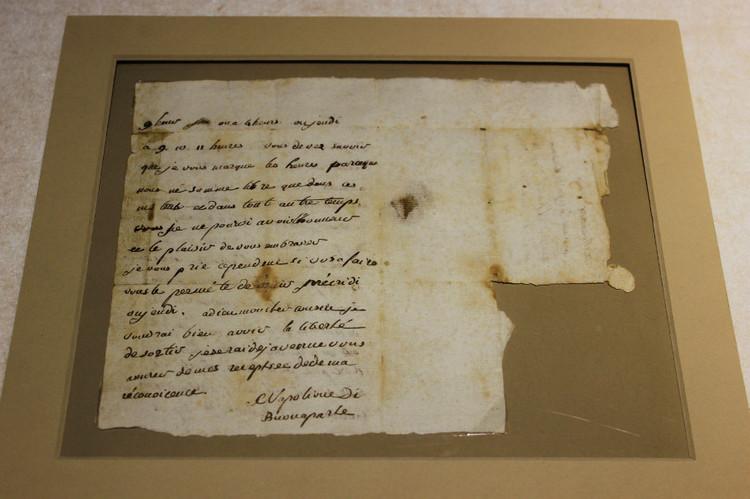 9 heures ou a 4 heures oujeudi
a 9 10 11 heures vous devez savoir
que je vous marque les heures parceque
nous ne somme libre que dans ces
et dans tout autre temps
je ne pouroi avoir
ce le plaisir de vous embrasser
je vous prie cependent si vos afaires
vous le permé te de venir mécridi
oujeudi. adieu mon cher je
voudrai bien avoir la liberté
de sortir je serai déja venue vous
assurer de mes de de ma
réconoicence
Napolione di
Buonaparte